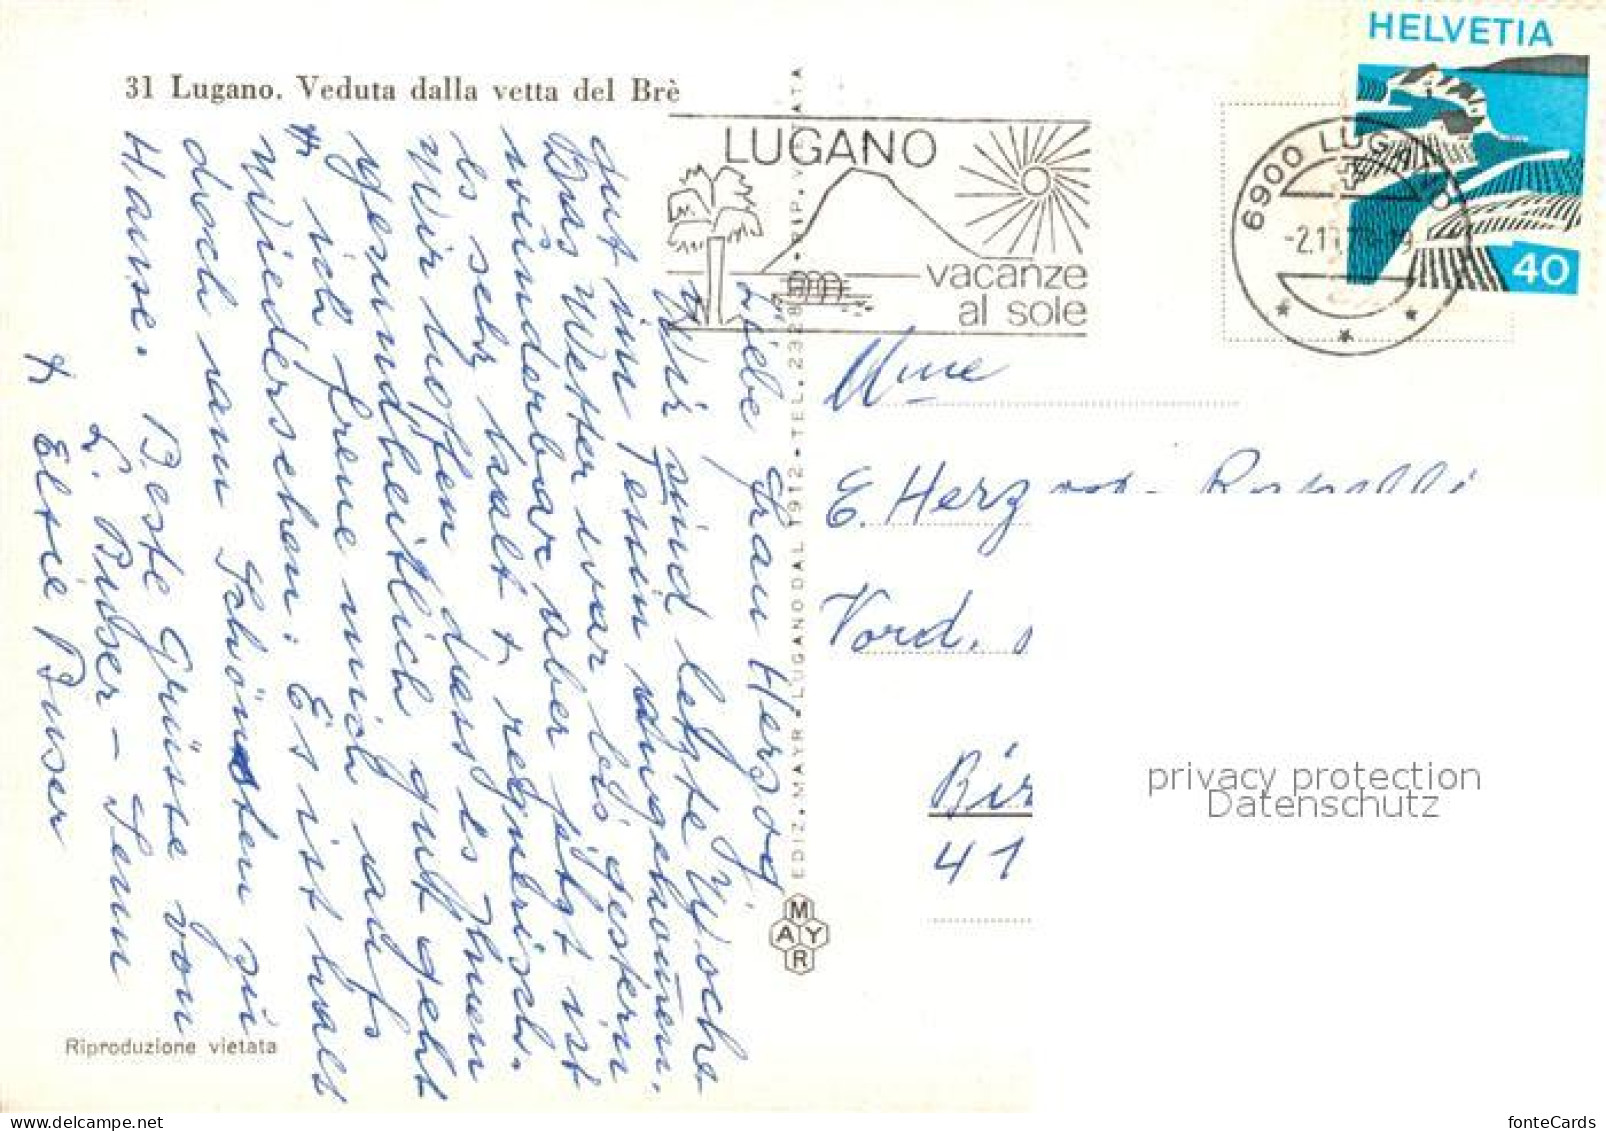 31 Lugano. Veduta dalla vetta del Brè
HELVETIA
40
LUGANO
vacanze
al sole
6900 LUGANO
Liebe Frau Herzog
Wir sind letzte Woche
gut im Tessin angekommen.
Das Wetter war bis gestern
wunderbar aber jetzt ist
es sehr kalt + regnerisch.
Wir hoffen dass es Ihnen
gesundheitlich gut geht
+ ich freue mich aufs
Wiedersehen. Es ist halt
doch am Schönsten zu
Hause. Beste Grüsse von
L. Buser - Senn
+ Elsie Buser
EDIZ. MAYR - LUGANO DAL 1912 - TEL. 2328 - RIP. VIETATA
MAYR
Mme
E. Herzog-
Vord.
Bir
41
Riproduzione vietata
privacy protection
Datenschutz
fonteCards